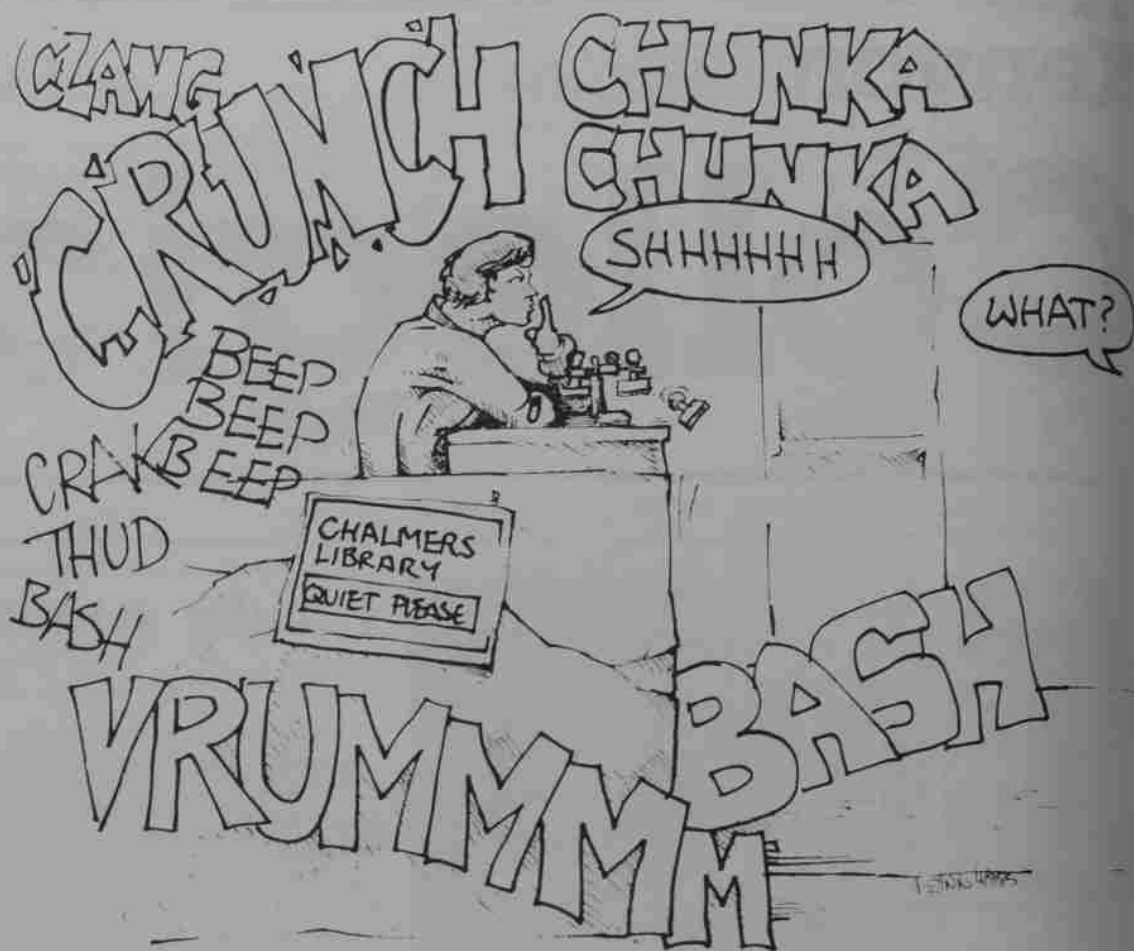 CLANG
CRUNCH
CHUNKA
CHUNKA
SHHHHHH
WHAT?
BEEP
BEEP
BEEP
CRAK
THUD
BASH
CHALMERS
LIBRARY
QUIET PLEASE
VRUMMMMM
BASH